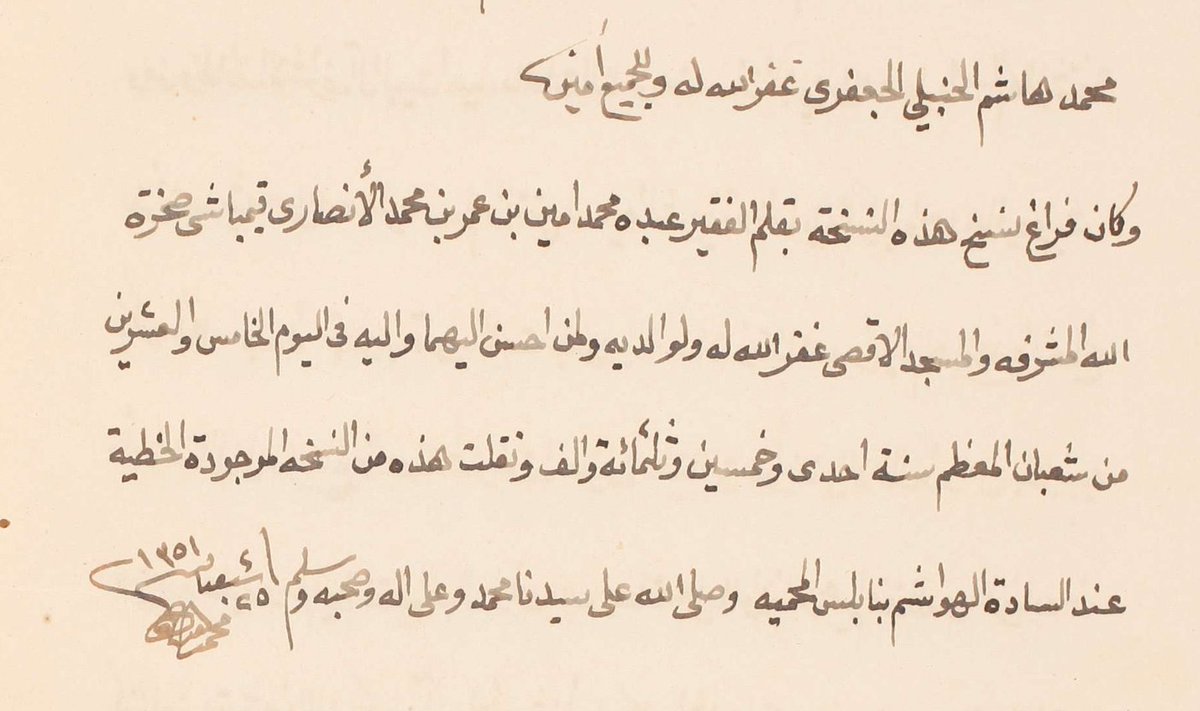 محمد هاشم الحنبلي الجعفرى غفر الله له وللجميع أمين
وكان فراغ نسخ هذه النسخة بقلم الفقير عبده محمد امين بن عمر بن محمد الأنصارى قيمباشى صخرة
الله المشرفه والمسجد الاقصى غفر الله له ولوالديه ولمن احسن اليهما واليه فى اليوم الخامس والعشرين
من شعبان المعظم سنة احدى وخمسين وثلثمائة والف ونقلت هذه من النسخه الموجودة الخطية
عند السادة الهواشم بنابلس المحميه وصلى الله على سيدنا محمد وعلى اله وصحبه وسلم ٢٥ شعبان ١٣٥١